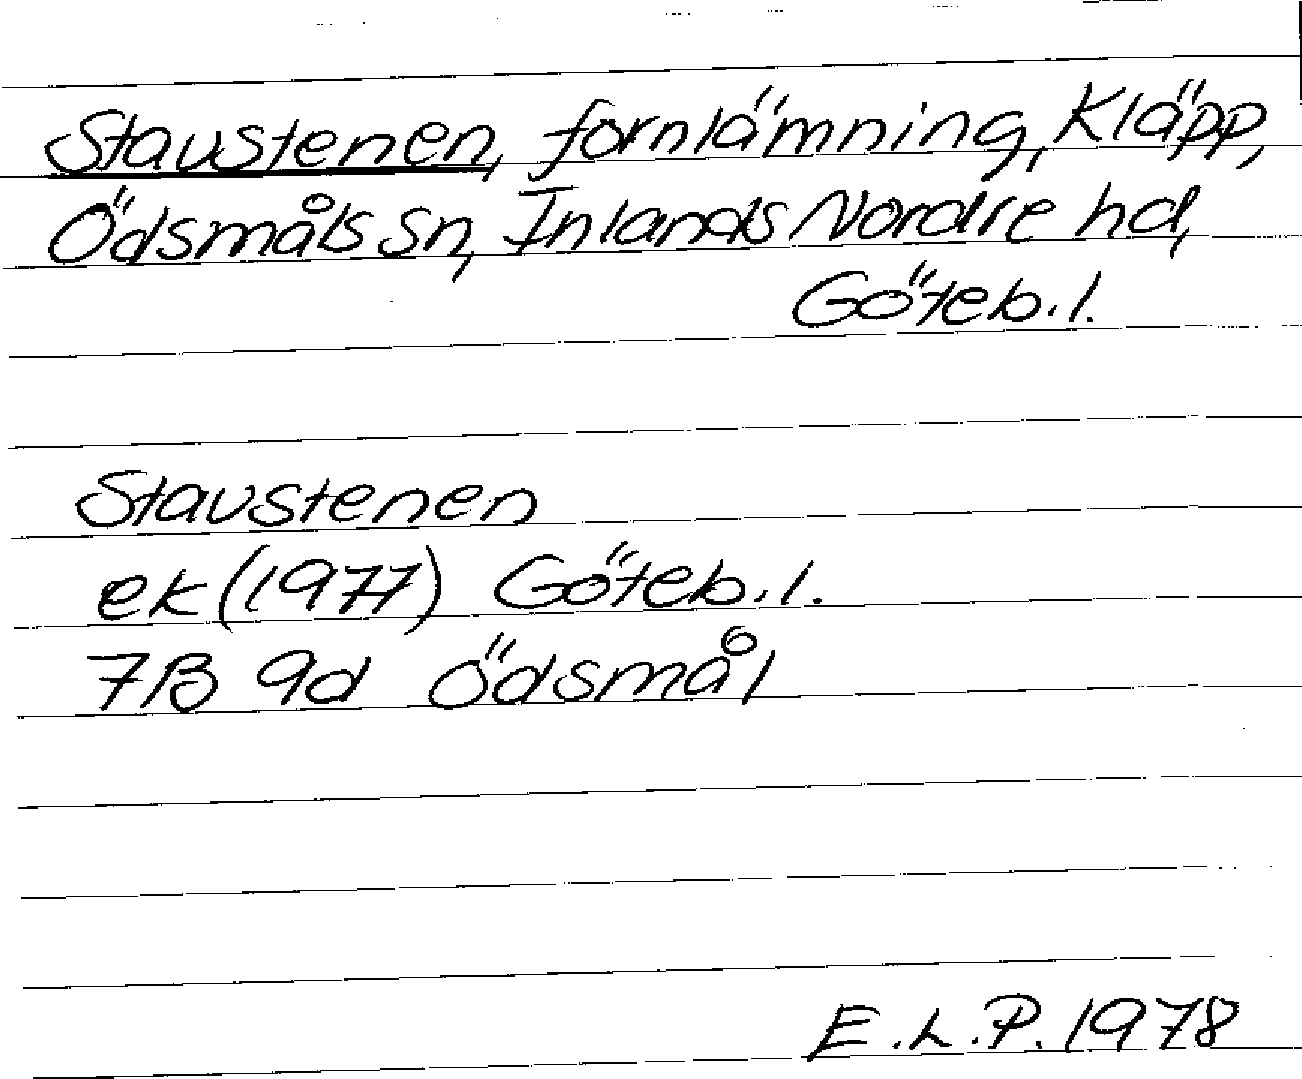 Staustenen, fornlämning, Kläpp,
Ödsmåls sn, Inlands Nordre hd,
Göteb.l.
Staustenen
ek (1977) Göteb.l.
7B 9d Ödsmål
E.L.P. 1978